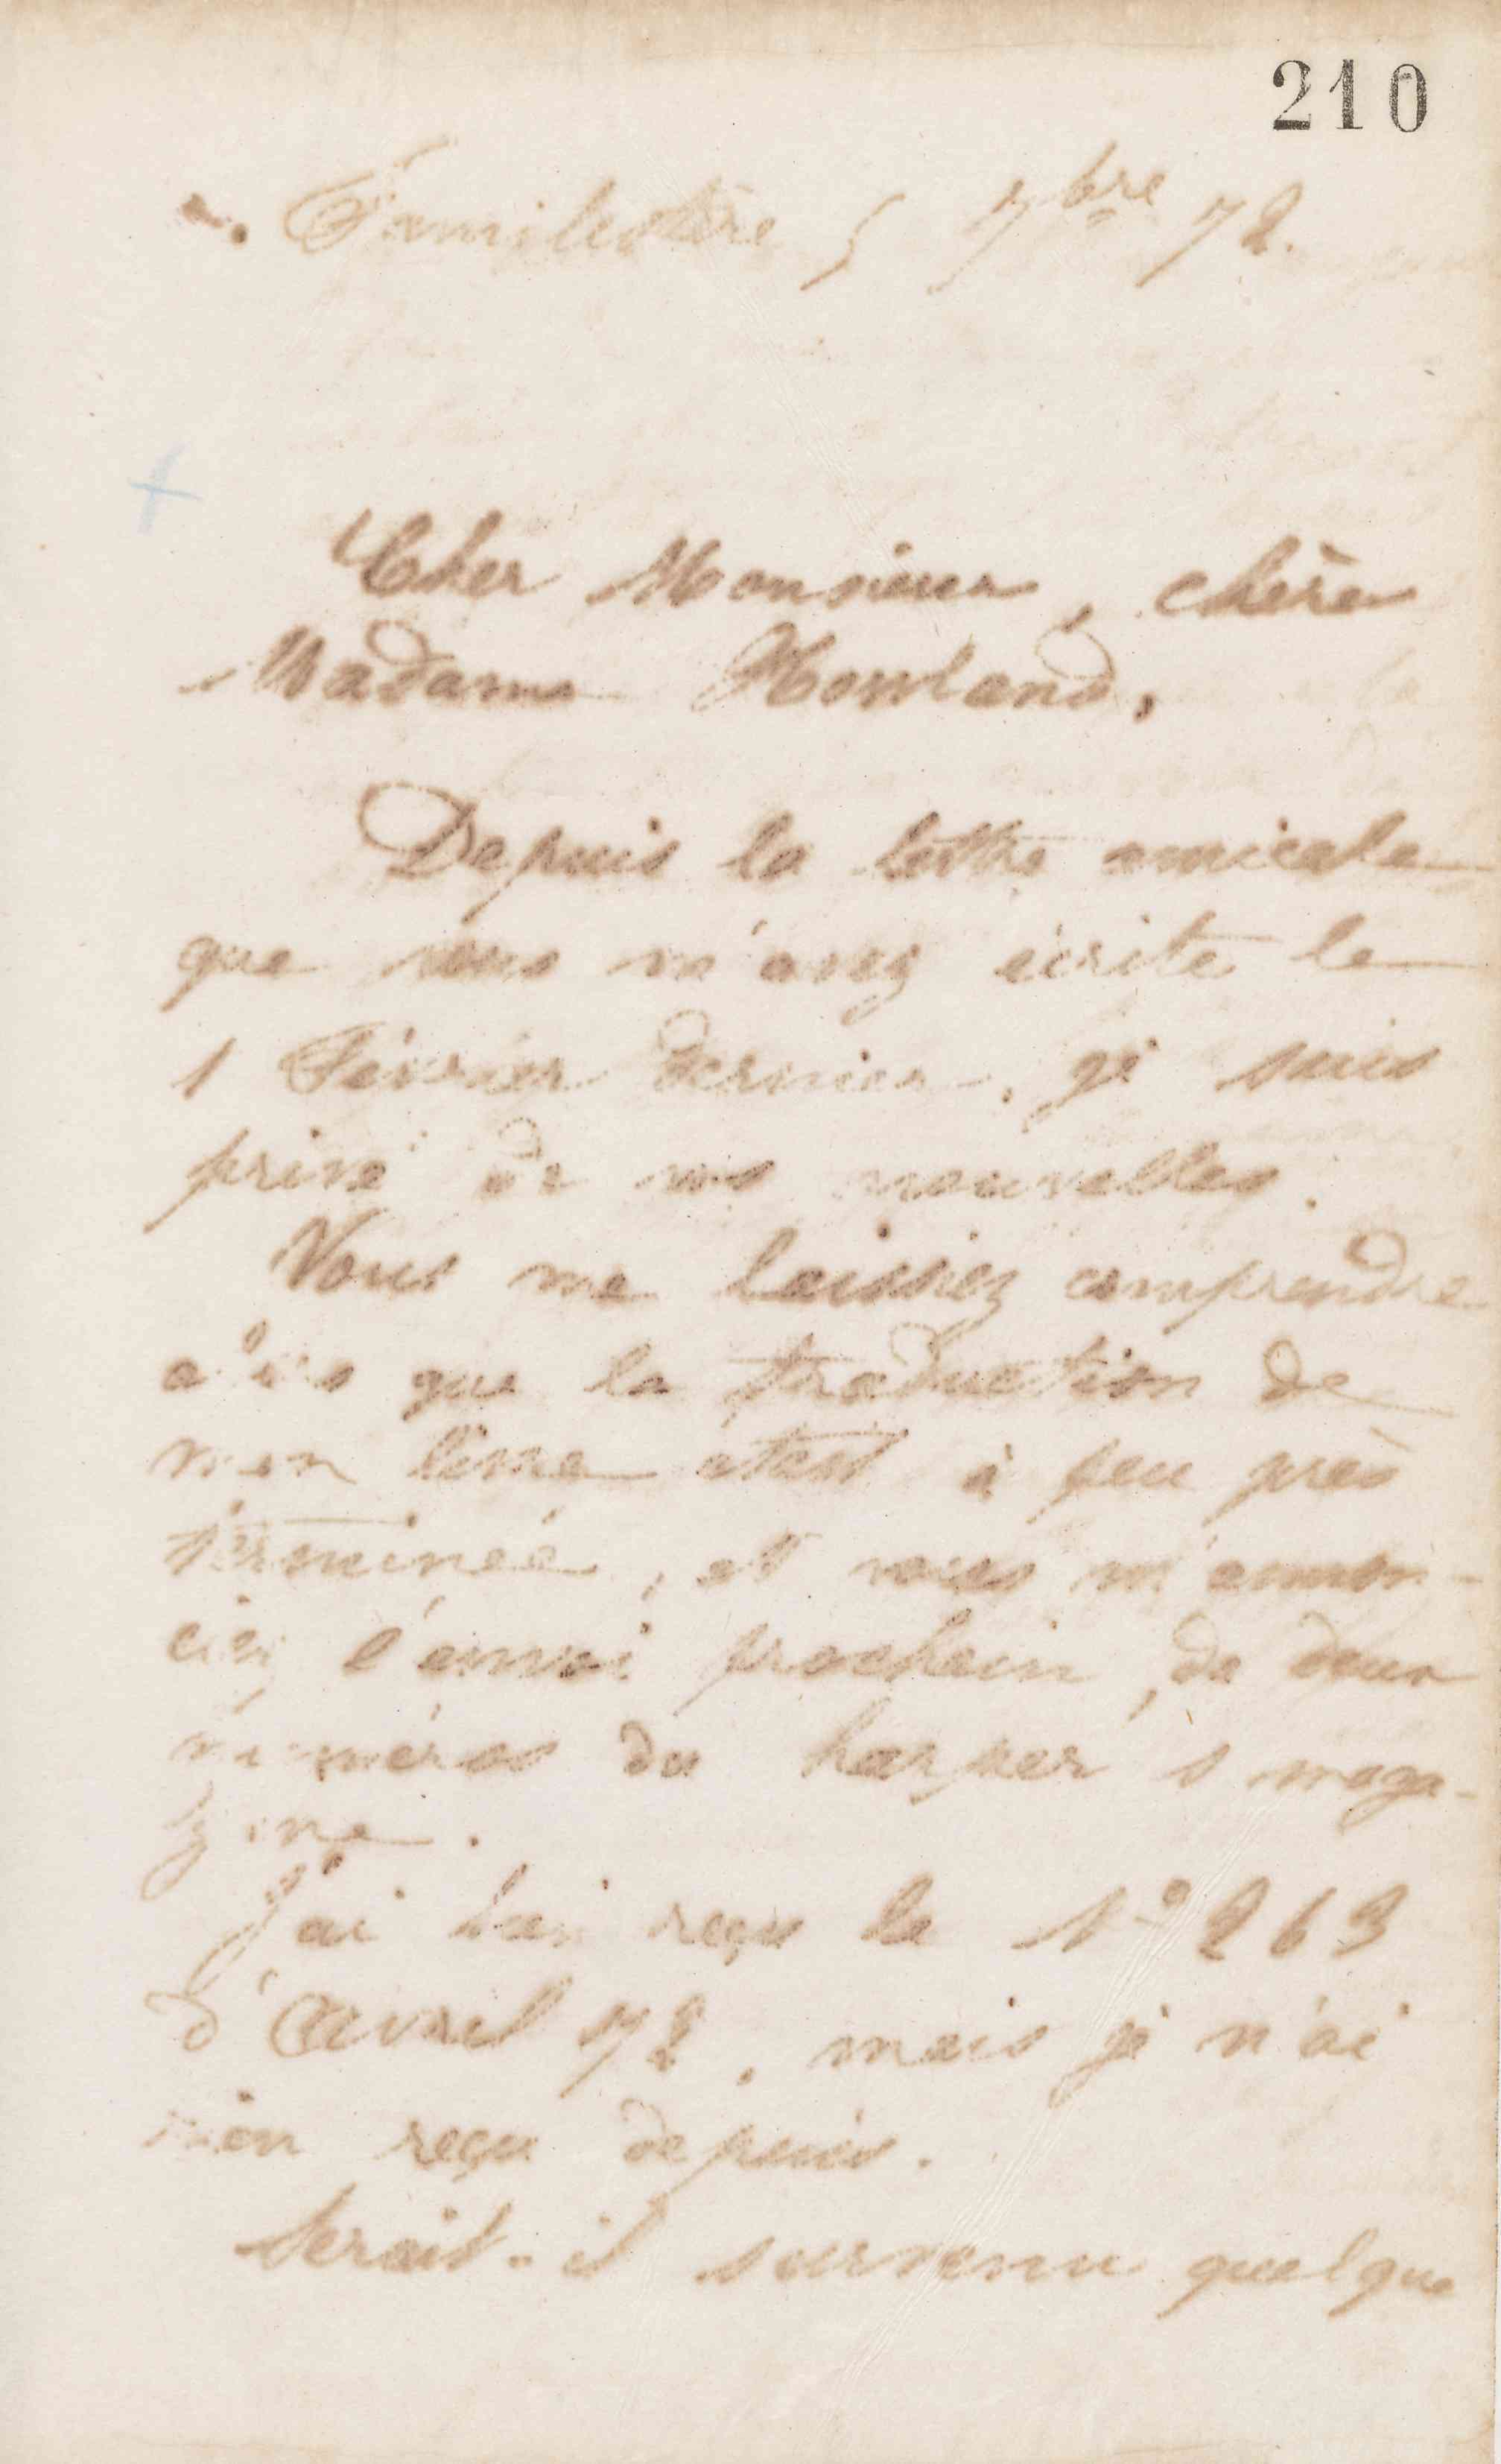 210
Familistère 5 7bre 72.
Cher Monsieur, chère
Madame Howland,
Depuis la lettre amicale
que vous m'avez écrite le
1 Février dernier, je suis
privé de vos nouvelles.
Vous me laissiez comprendre
alors que la traduction de
mon livre était à peu près
terminée, et vous m'annon-
ciez l'envoi prochain, de deux
numéros du harper's maga-
zine.
J'ai bien reçu le N° 263
d'avril 72, mais je n'ai
rien reçu depuis.
Serait-il survenu quelque